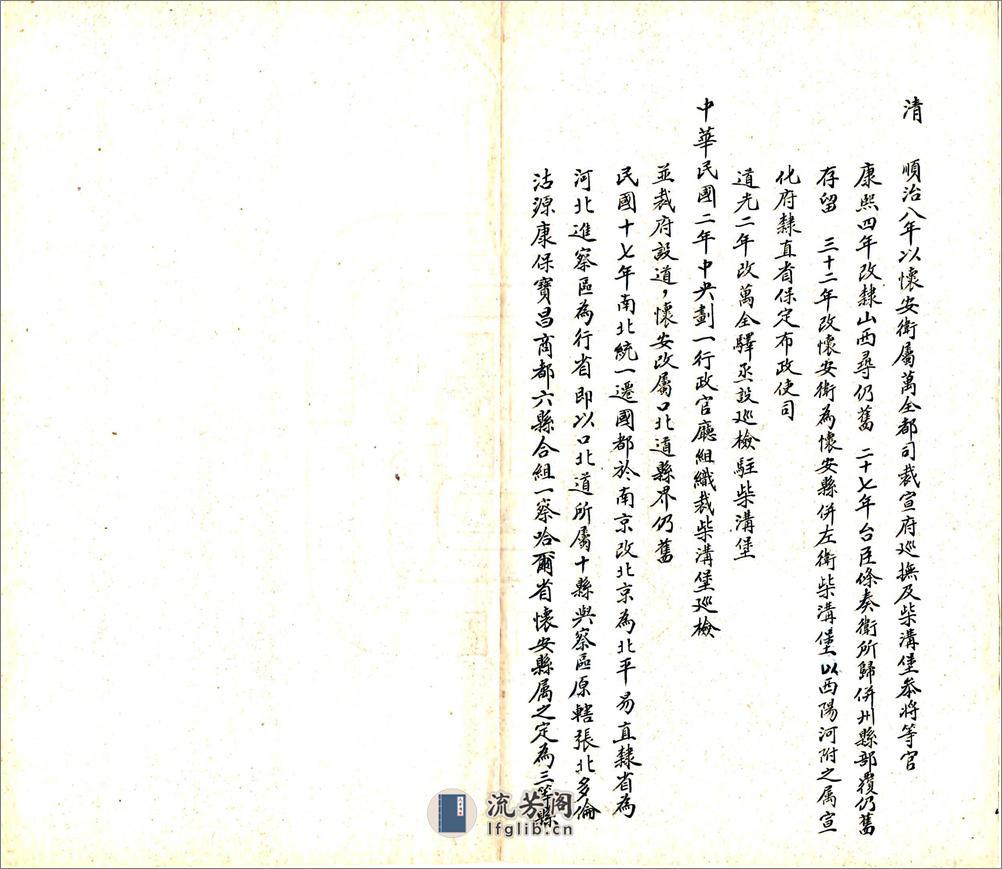 清 順治八年以懷安衛屬萬全都司裁宣府巡撫及柴溝堡叅將等官
康熙四年改隸山西尋仍舊 二十七年台臣條奏衛所歸併州縣部覆仍舊
存留 三十二年改懷安衛為懷安縣併左衛柴溝堡以西陽河附之属宣
化府隸直省保定布政使司
道光二年改萬全驛丞設巡檢駐柴溝堡
中華民國二年中央劃一行政官廳組織裁柴溝堡巡檢
並裁府設道，懷安改屬口北道縣界仍舊
民國十七年南北統一遷國都於南京改北京為北平易直隸省為
河北進察區為行省即以口北道所屬十縣與察區原轄張北多倫
沽源康保寶昌商都六縣合組一察哈爾省懷安縣属之定為三等縣
流芳阁
lfglib.cn